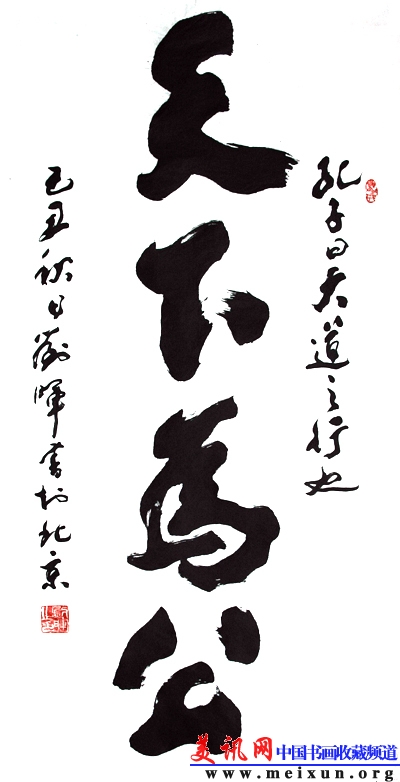 孔子曰大道之行也
天下為公
己丑秋日劉暉書於北京
美讯网 中国书画收藏频道
www.meixun.org